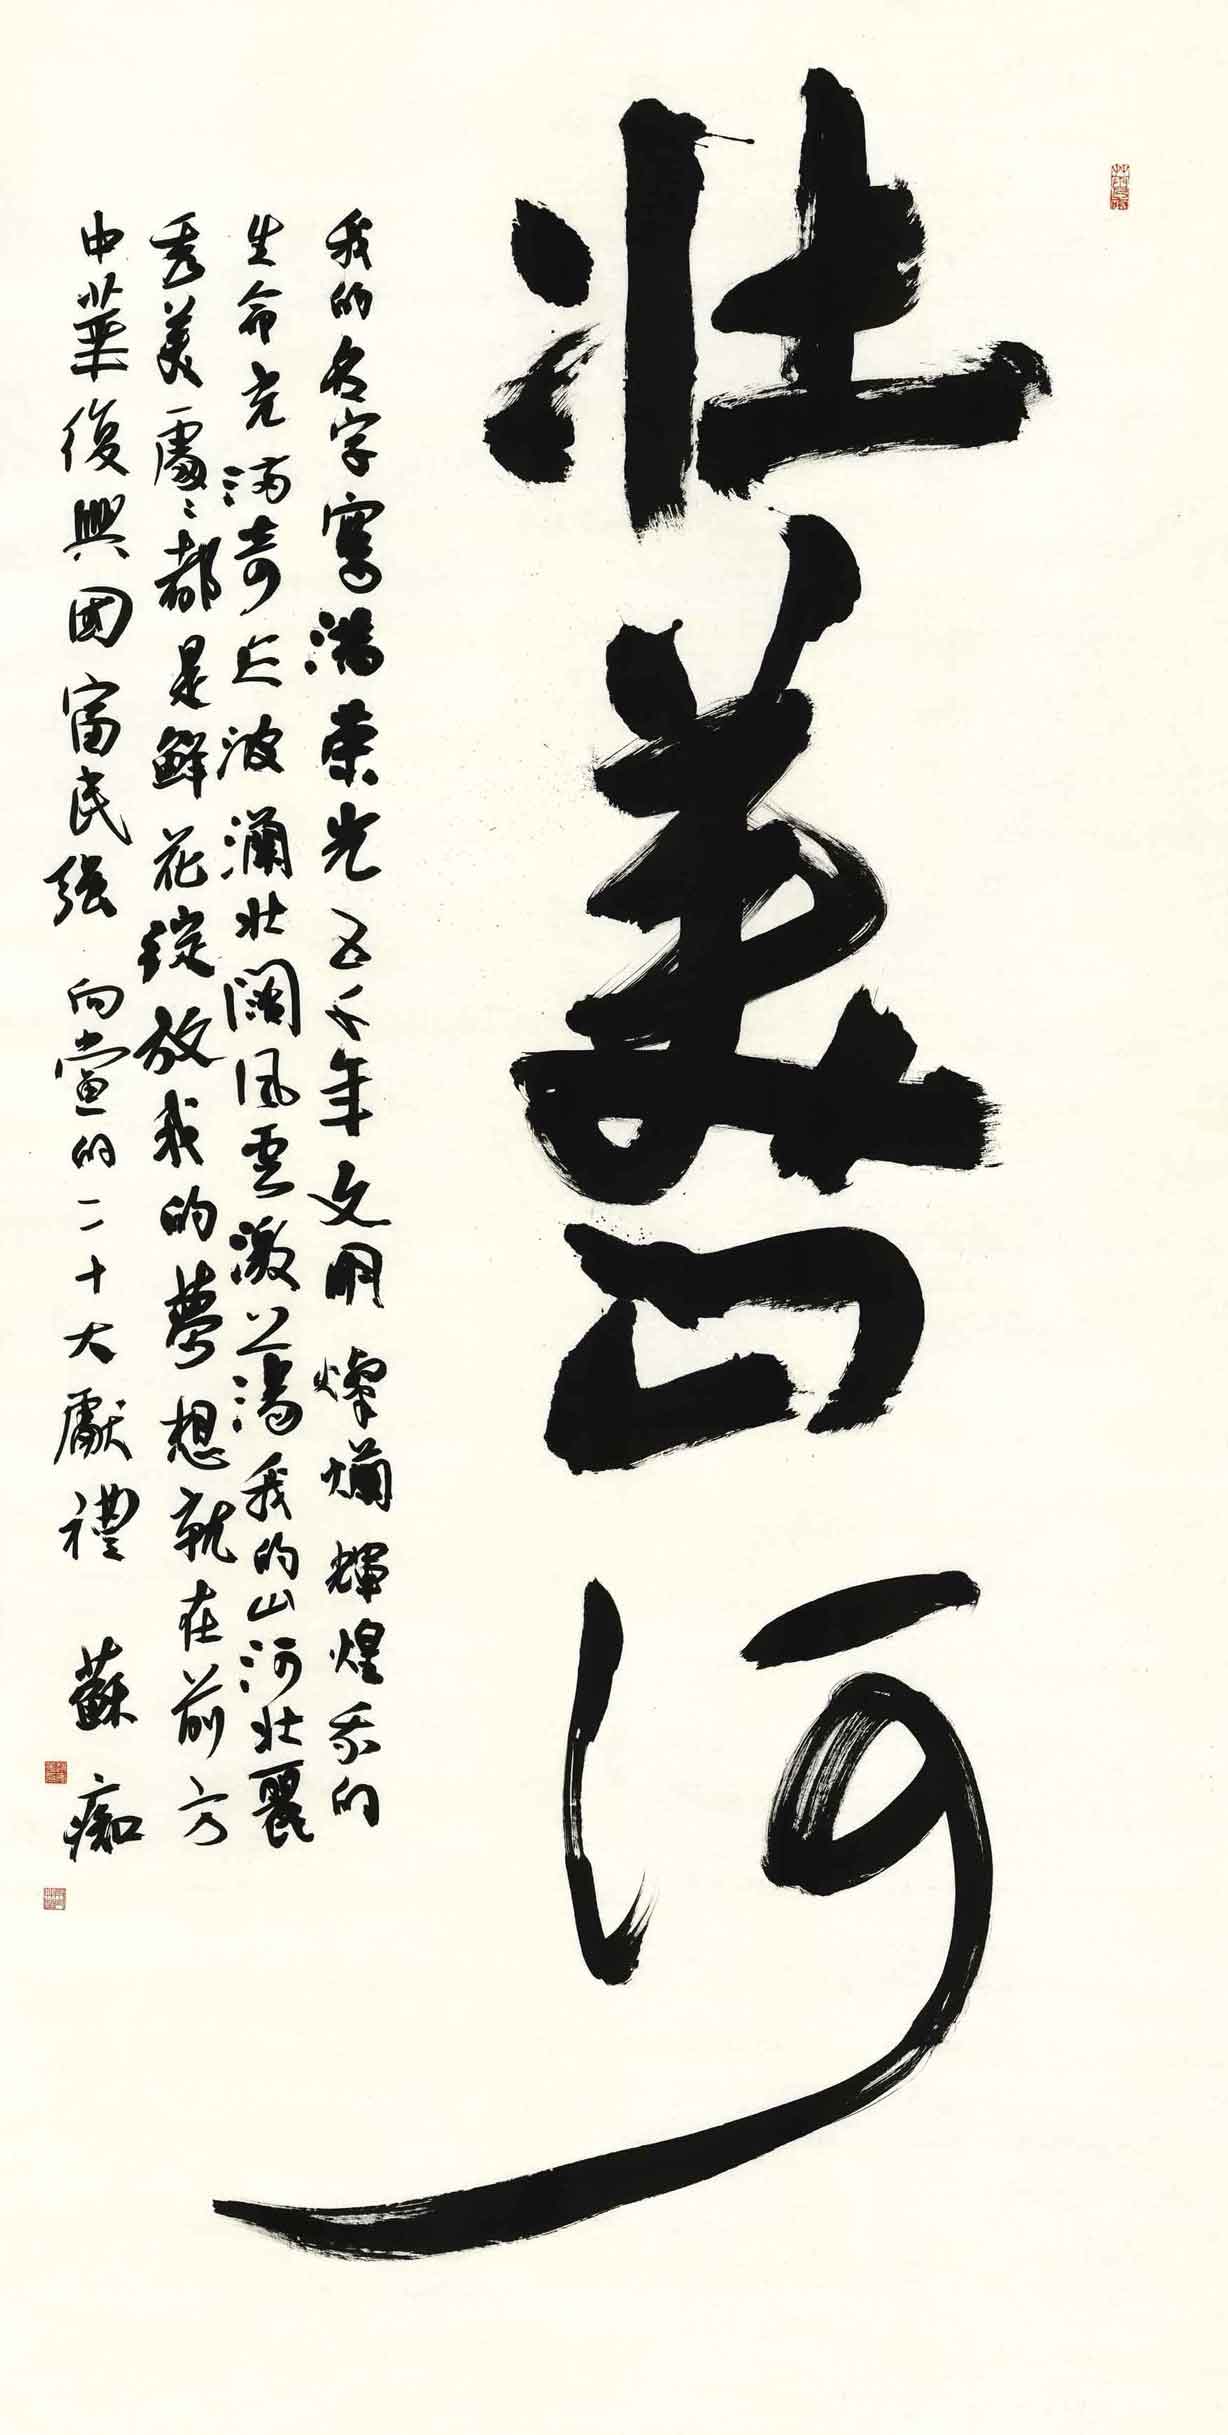 壯美山河
我的名字寫滿榮光五千年文明燦爛輝煌我的
生命充滿奇跡波瀾壯闊風雲激盪我的山河壯麗
秀美處處都是鮮花綻放我的夢想就在前方
中華復興國富民強 向黨的二十大獻禮 蘇痴